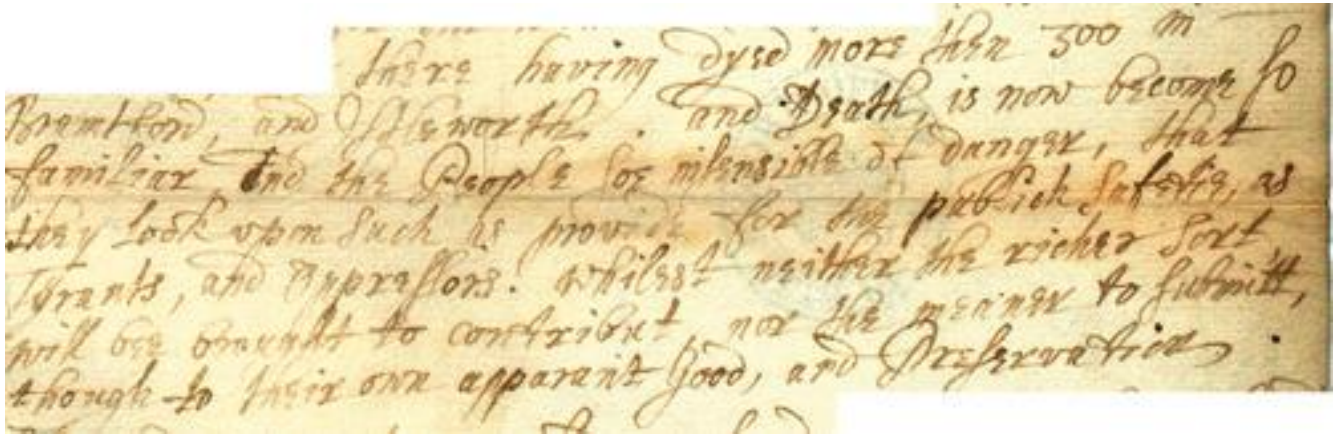 there having dyed more then 300 in
Bramtford, and Istleworth. and Death, is now become so
familiar, and the People soe insensible of danger, that
they look vpon such as provide for the publick safetie, as
Tyrants, and Oppressors. whilest neither the richer sort
will bee brought to contribut, nor the meaner to submitt,
though to their own apparant Good, and Preservation.